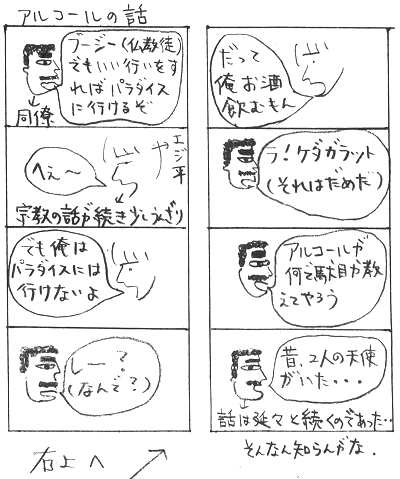 アルコールの話
ブージー(仏教徒)
でもいい行いをす
ればパラダイス
に行けるぞ
同僚
へぇ〜
エジ平
宗教の話が続き少しうんざり
でも俺は
パラダイスには
行けないよ
レー?
(なんで?)
右上へ
だって
俺お酒
飲むもん
ラ!ケダガラット
(それはだめだ)
アルコールが
何で駄目か教
えてやろう
昔、2人の天使
がいた・・・
話は延々と続くのであった…
そんなん知らんがな.